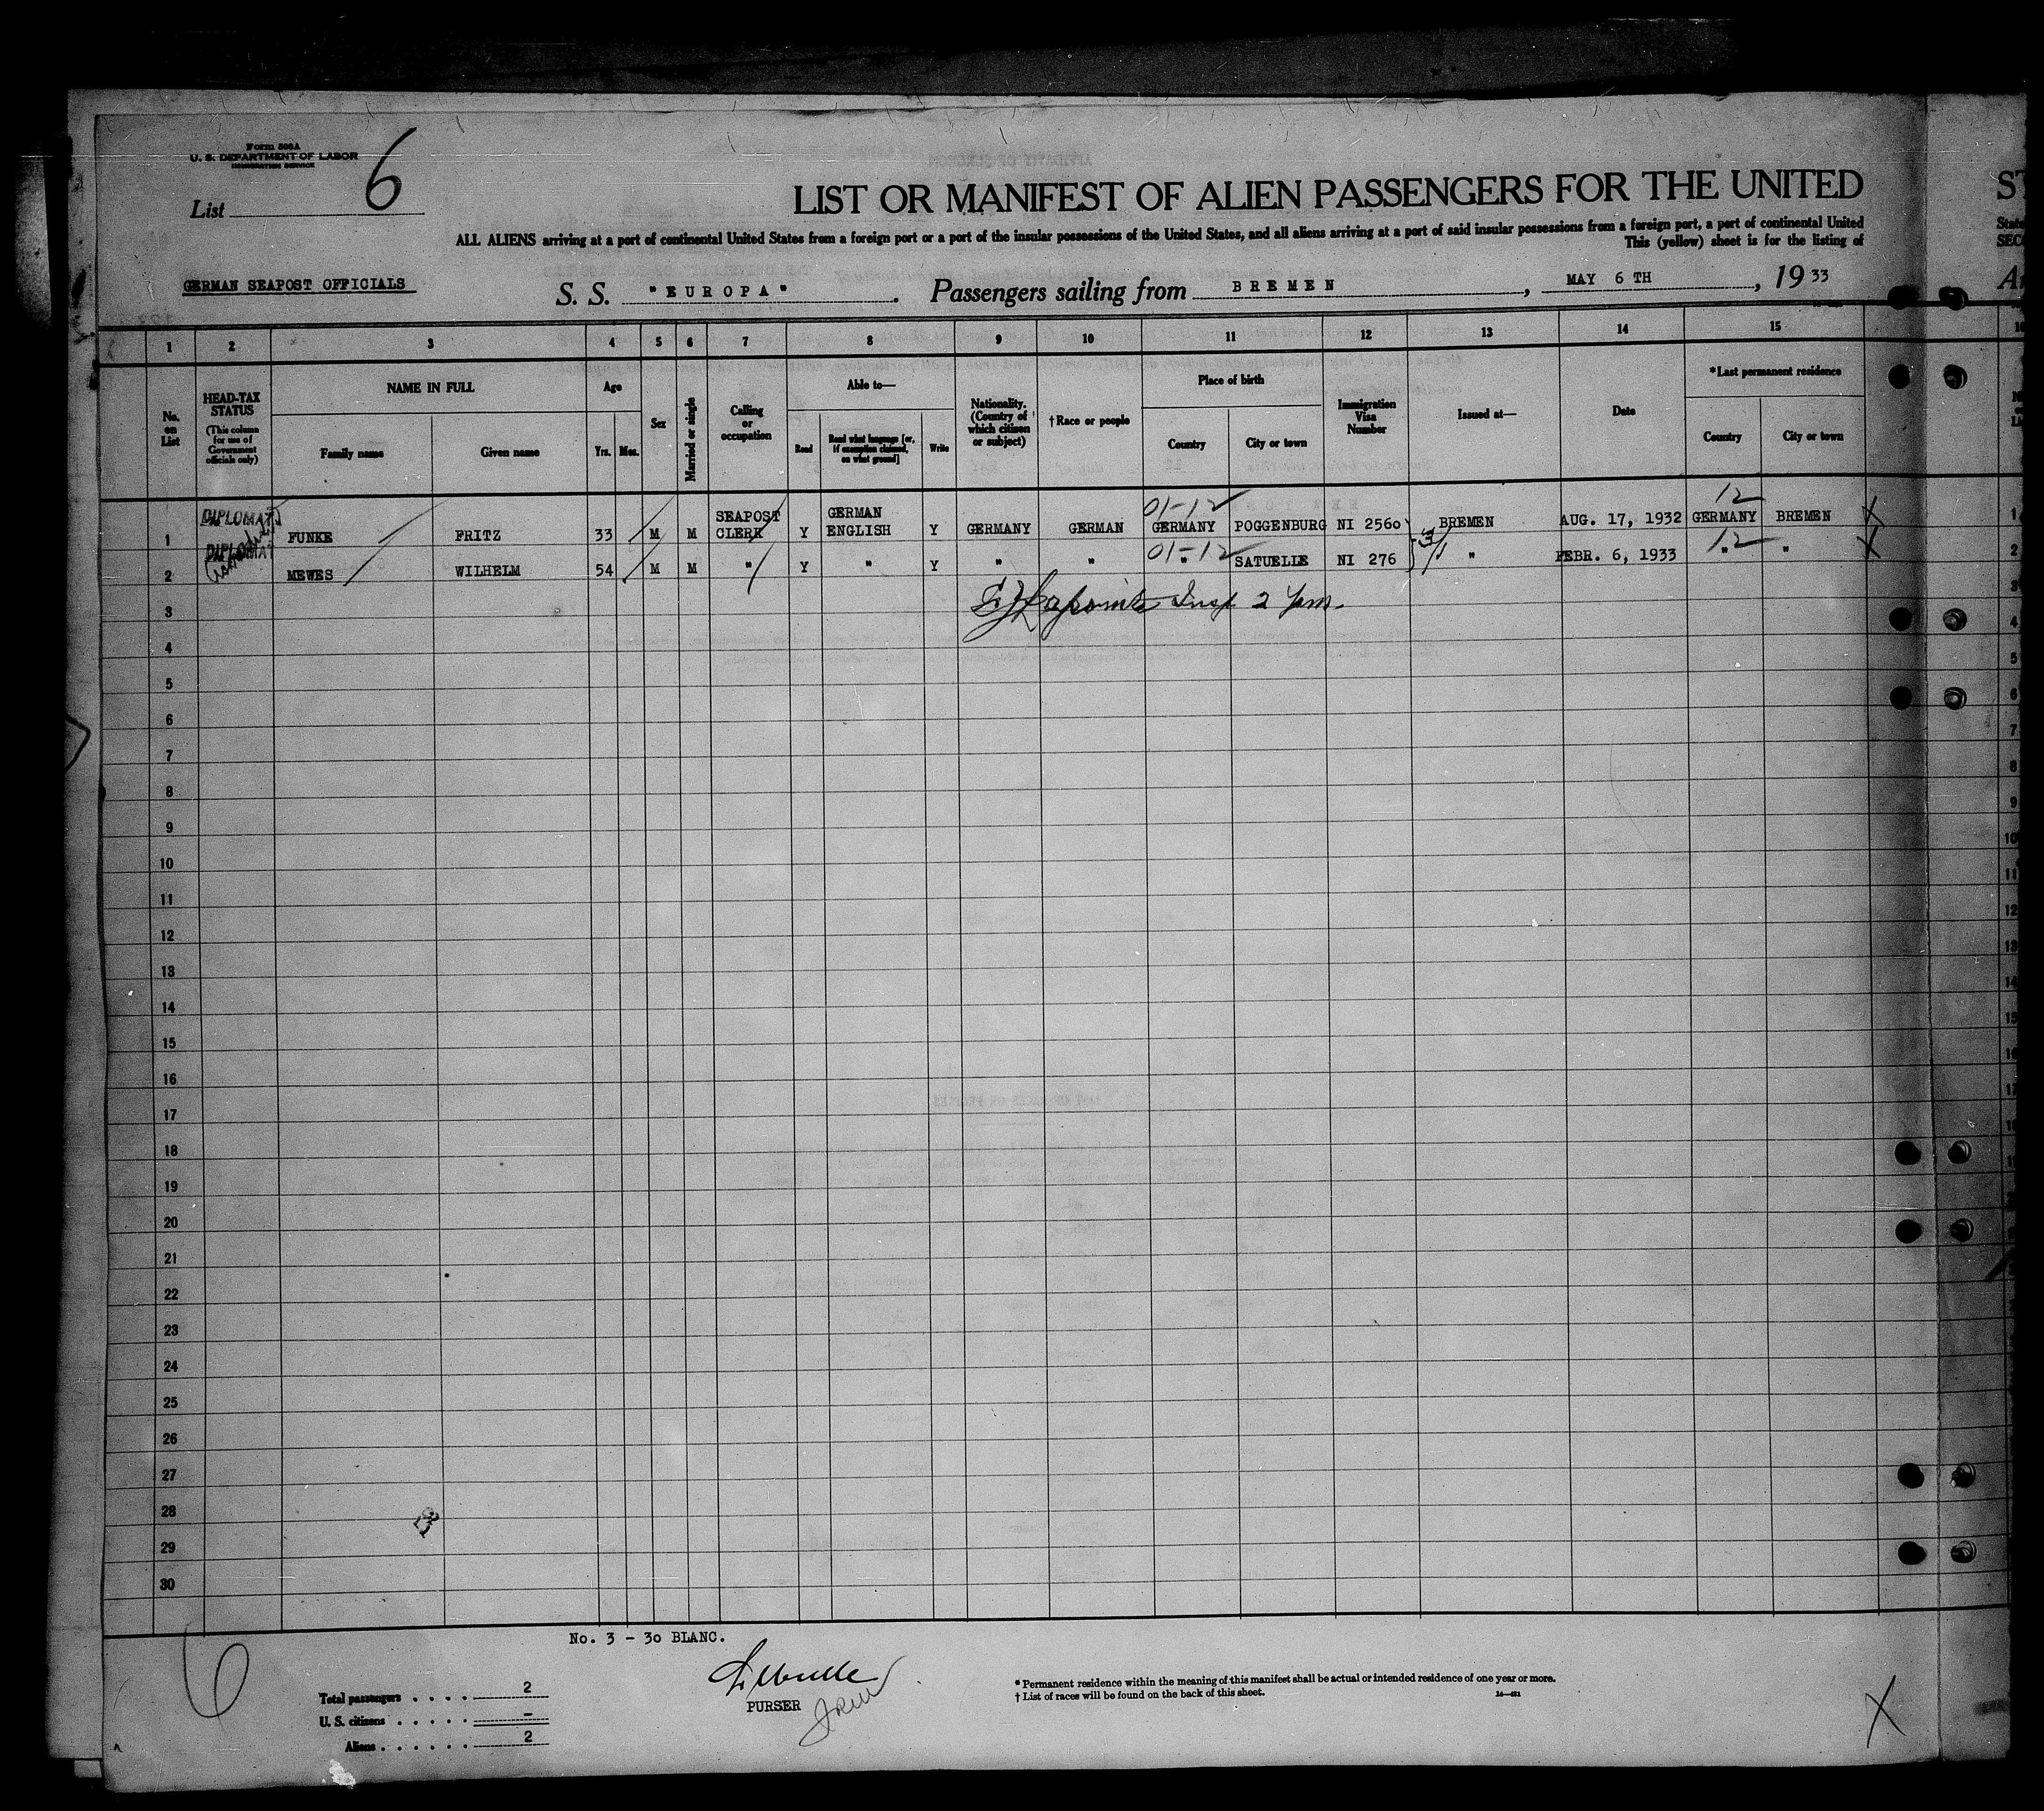 Form 500A
U. S. DEPARTMENT OF LABOR
IMMIGRATION SERVICE
List 6
LIST OR MANIFEST OF ALIEN PASSENGERS FOR THE UNITED
ALL ALIENS arriving at a port of continental United States from a foreign port or a port of the insular possessions of the United States, and all aliens arriving at a port of said insular possessions from a foreign port, a port of continental United
This (yellow) sheet is for the listing of
GERMAN SEAPOST OFFICIALS
S. S. "EUROPA". Passengers sailing from BREMEN, MAY 6 TH, 1933
1 2 3 4 5 6 7 8 9 10 11 12 13 14 15
No. on List
HEAD-TAX STATUS
(This column for use of Government officials only)
NAME IN FULL
Family name Given name
Age
Yrs. Mos.
Sex
Married or single
Calling or occupation
Able to—
Read Read what language [or, if exemption claimed, on what ground] Write
Nationality. (Country of which citizen or subject)
†Race or people
Place of birth
Country City or town
Immigration Visa Number
Issued at—
Date
*Last permanent residence
Country City or town
01-12 12
1 DIPLOMAT FUNKE FRITZ 33 M M SEAPOST CLERK Y GERMAN ENGLISH Y GERMANY GERMAN GERMANY POGGENBURG NI 2560 BREMEN AUG. 17, 1932 GERMANY BREMEN
01-12 12
2 DIPLOMAT MEWES WILHELM 54 M M " Y " Y " " " SATUELLE NI 276 " FEBR. 6, 1933 " "
3 Insp
4
5
6
7
8
9
10
11
12
13
14
15
16
17
18
19
20
21
22
23
24
25
26
27
28
29
30
No. 3 - 30 BLANC.
6
Total passengers . . . . 2
U. S. citizens . . . . . –
Aliens . . . . . . 2
PURSER
* Permanent residence within the meaning of this manifest shall be actual or intended residence of one year or more.
† List of races will be found on the back of this sheet.
X